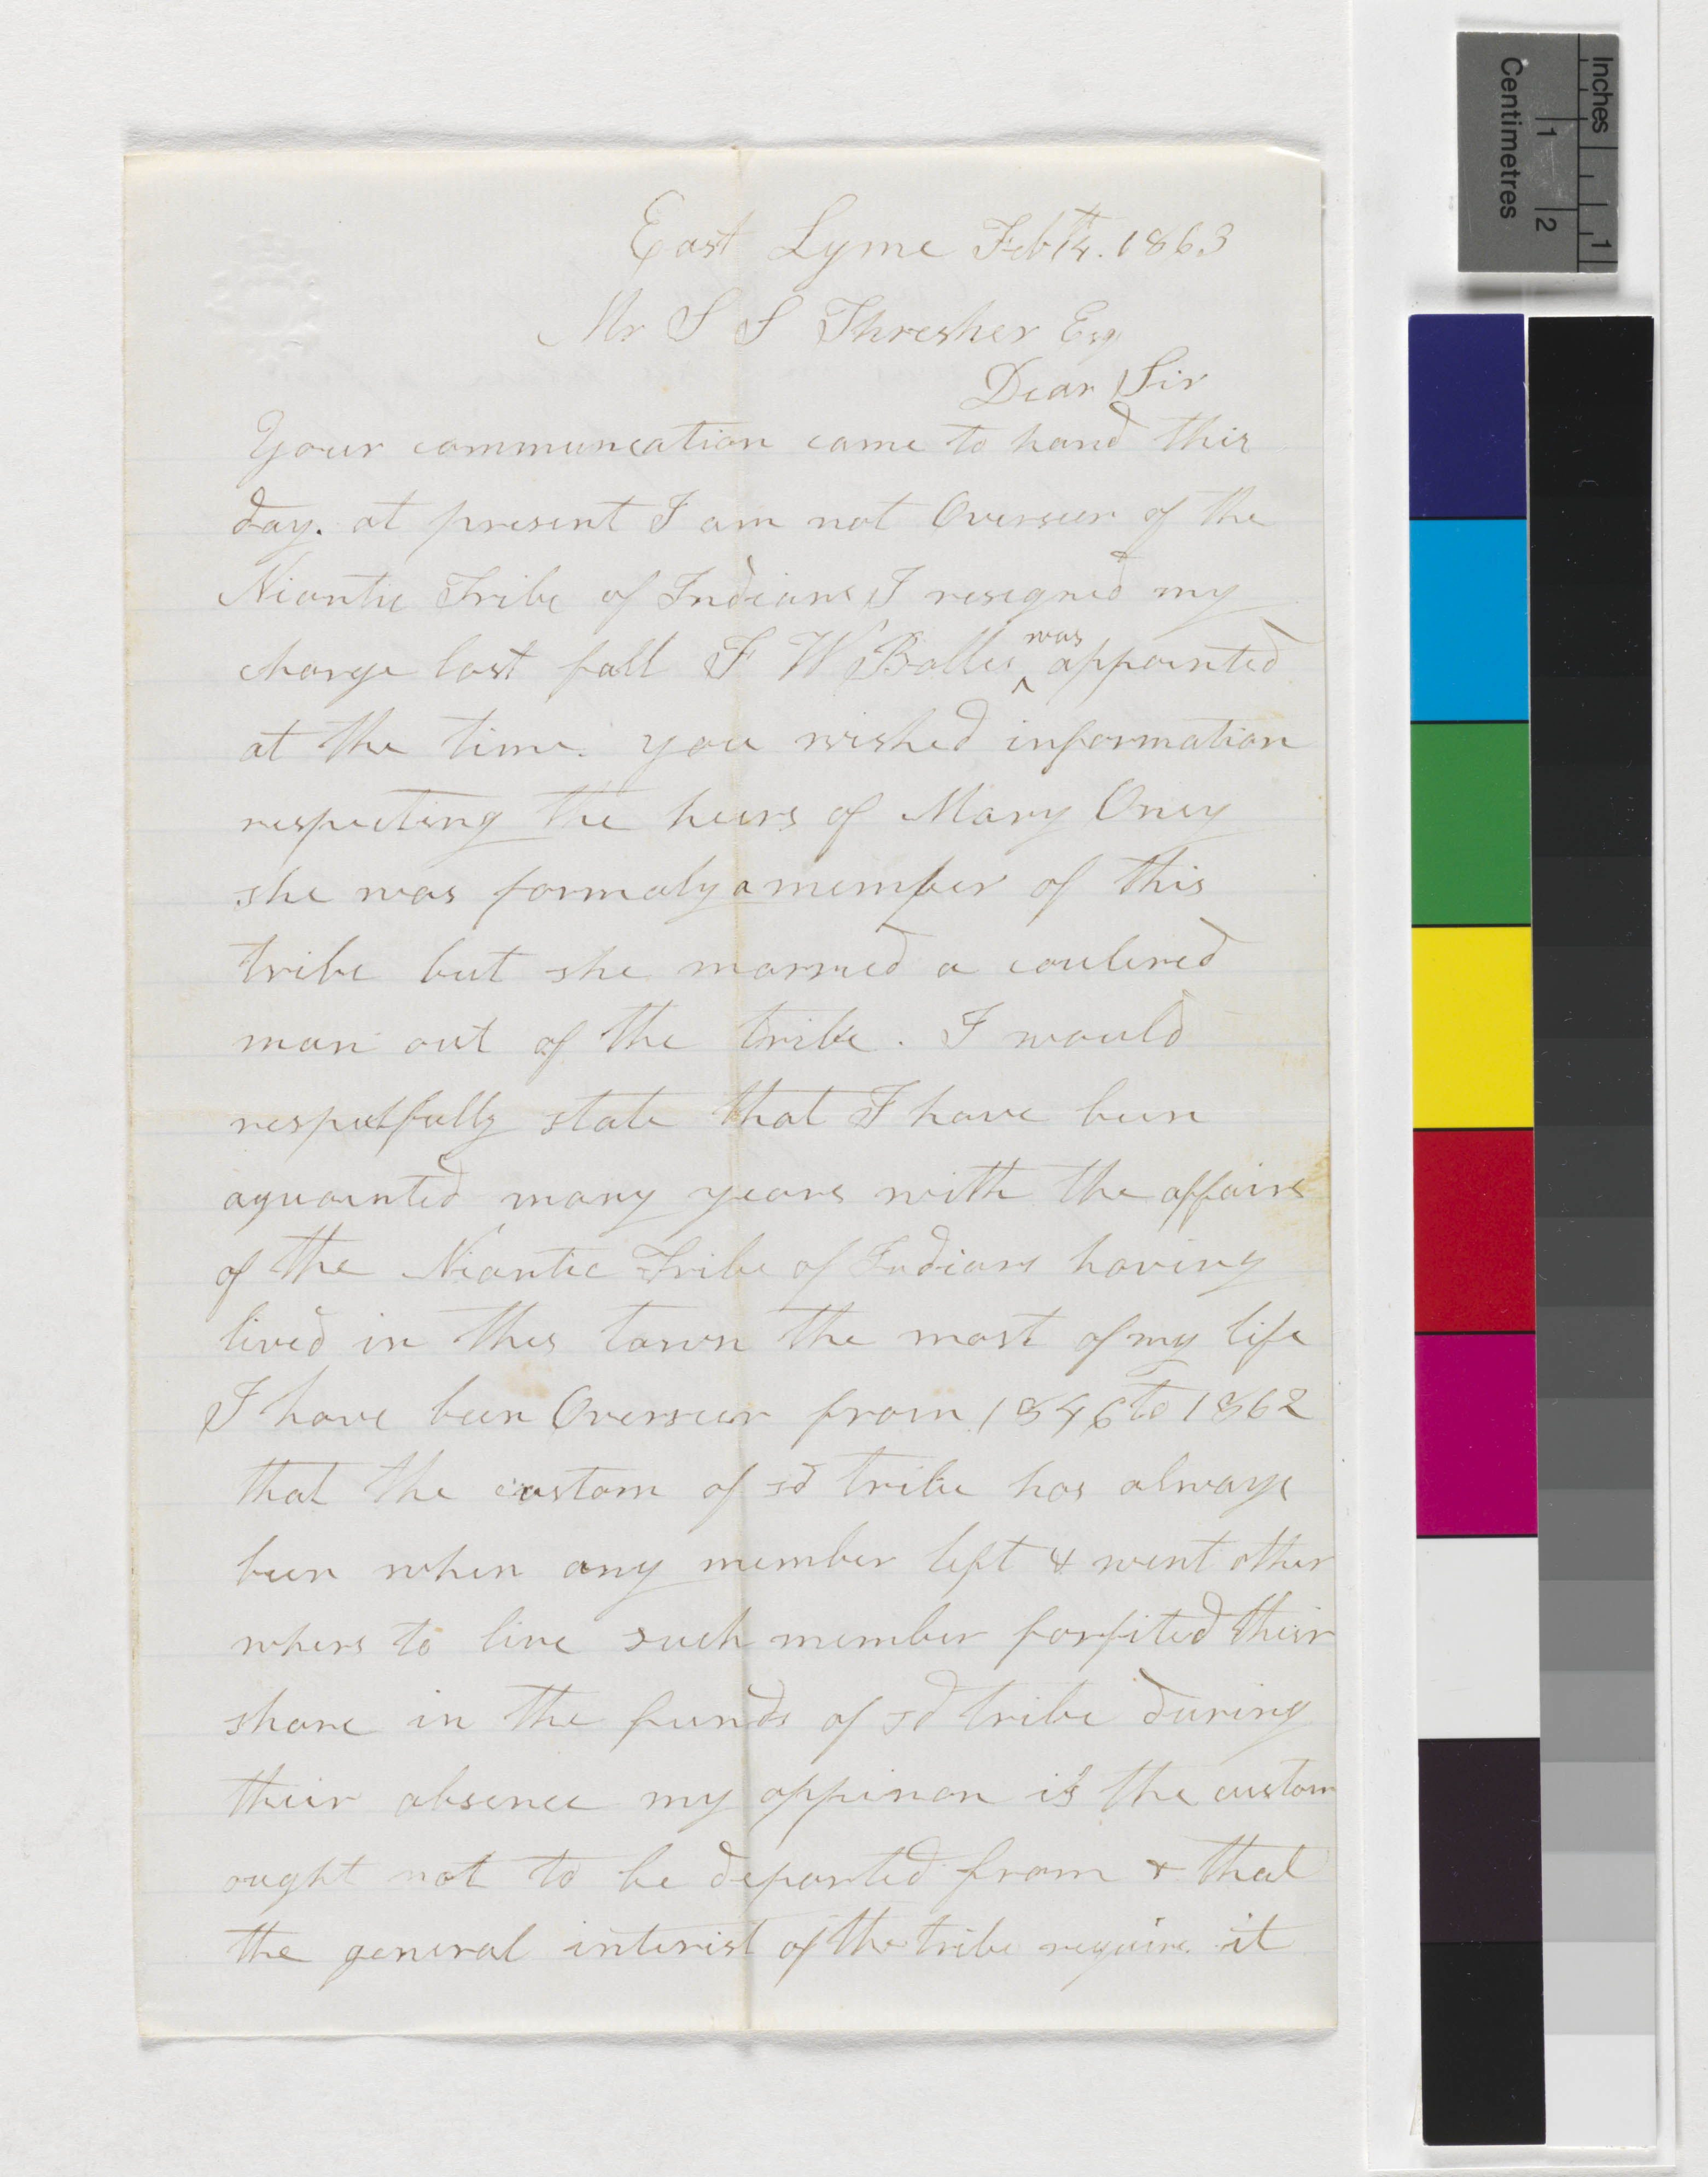 East Lyme Feb 14th. 1863
Mr S S Thresher Esq
Dear Sir
Your communcation came to hand this
day. at present I am not Overseer of the
Niantic Tribe of Indians I resigned my
charge last fall F W Bolles was appointed
at the time. you wished information
respecting the heirs of Mary Oney
she was formaly a member of this
tribe but she married a coulered
man out of the tribe. I would
respectfully state that I have been
aquainted many years with the affairs
of the Niantic Tribe of Indians having
lived in this town the most of my life
I have been Overseer from 1846 to 1862
that the custom of sd tribe has always
been when any member left & went other
whers to live such member forfited their
share in the funds of sd tribe during
their absence my oppinon is the custom
ought not to be departed from & that
the general interist of the tribe require it
Inches
1
Centimetres
1
2